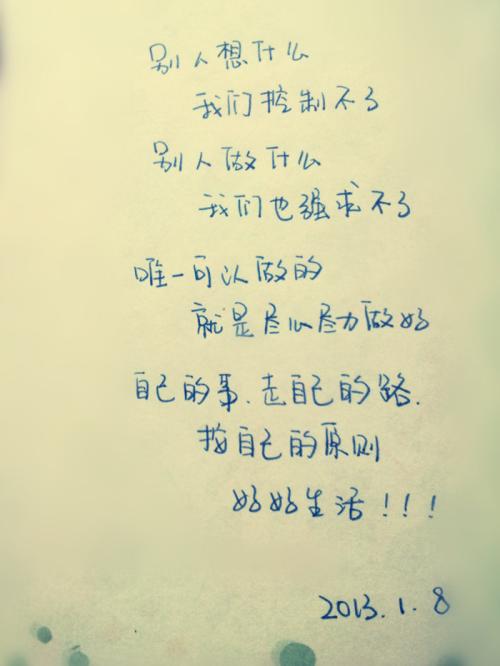 别人想什么
我们控制不了
别人做什么
我们也强求不了
唯一可以做的
就是尽心尽力做好
自己的事、走自己的路、
按自己的原则
好好生活!!!
2013.1.8